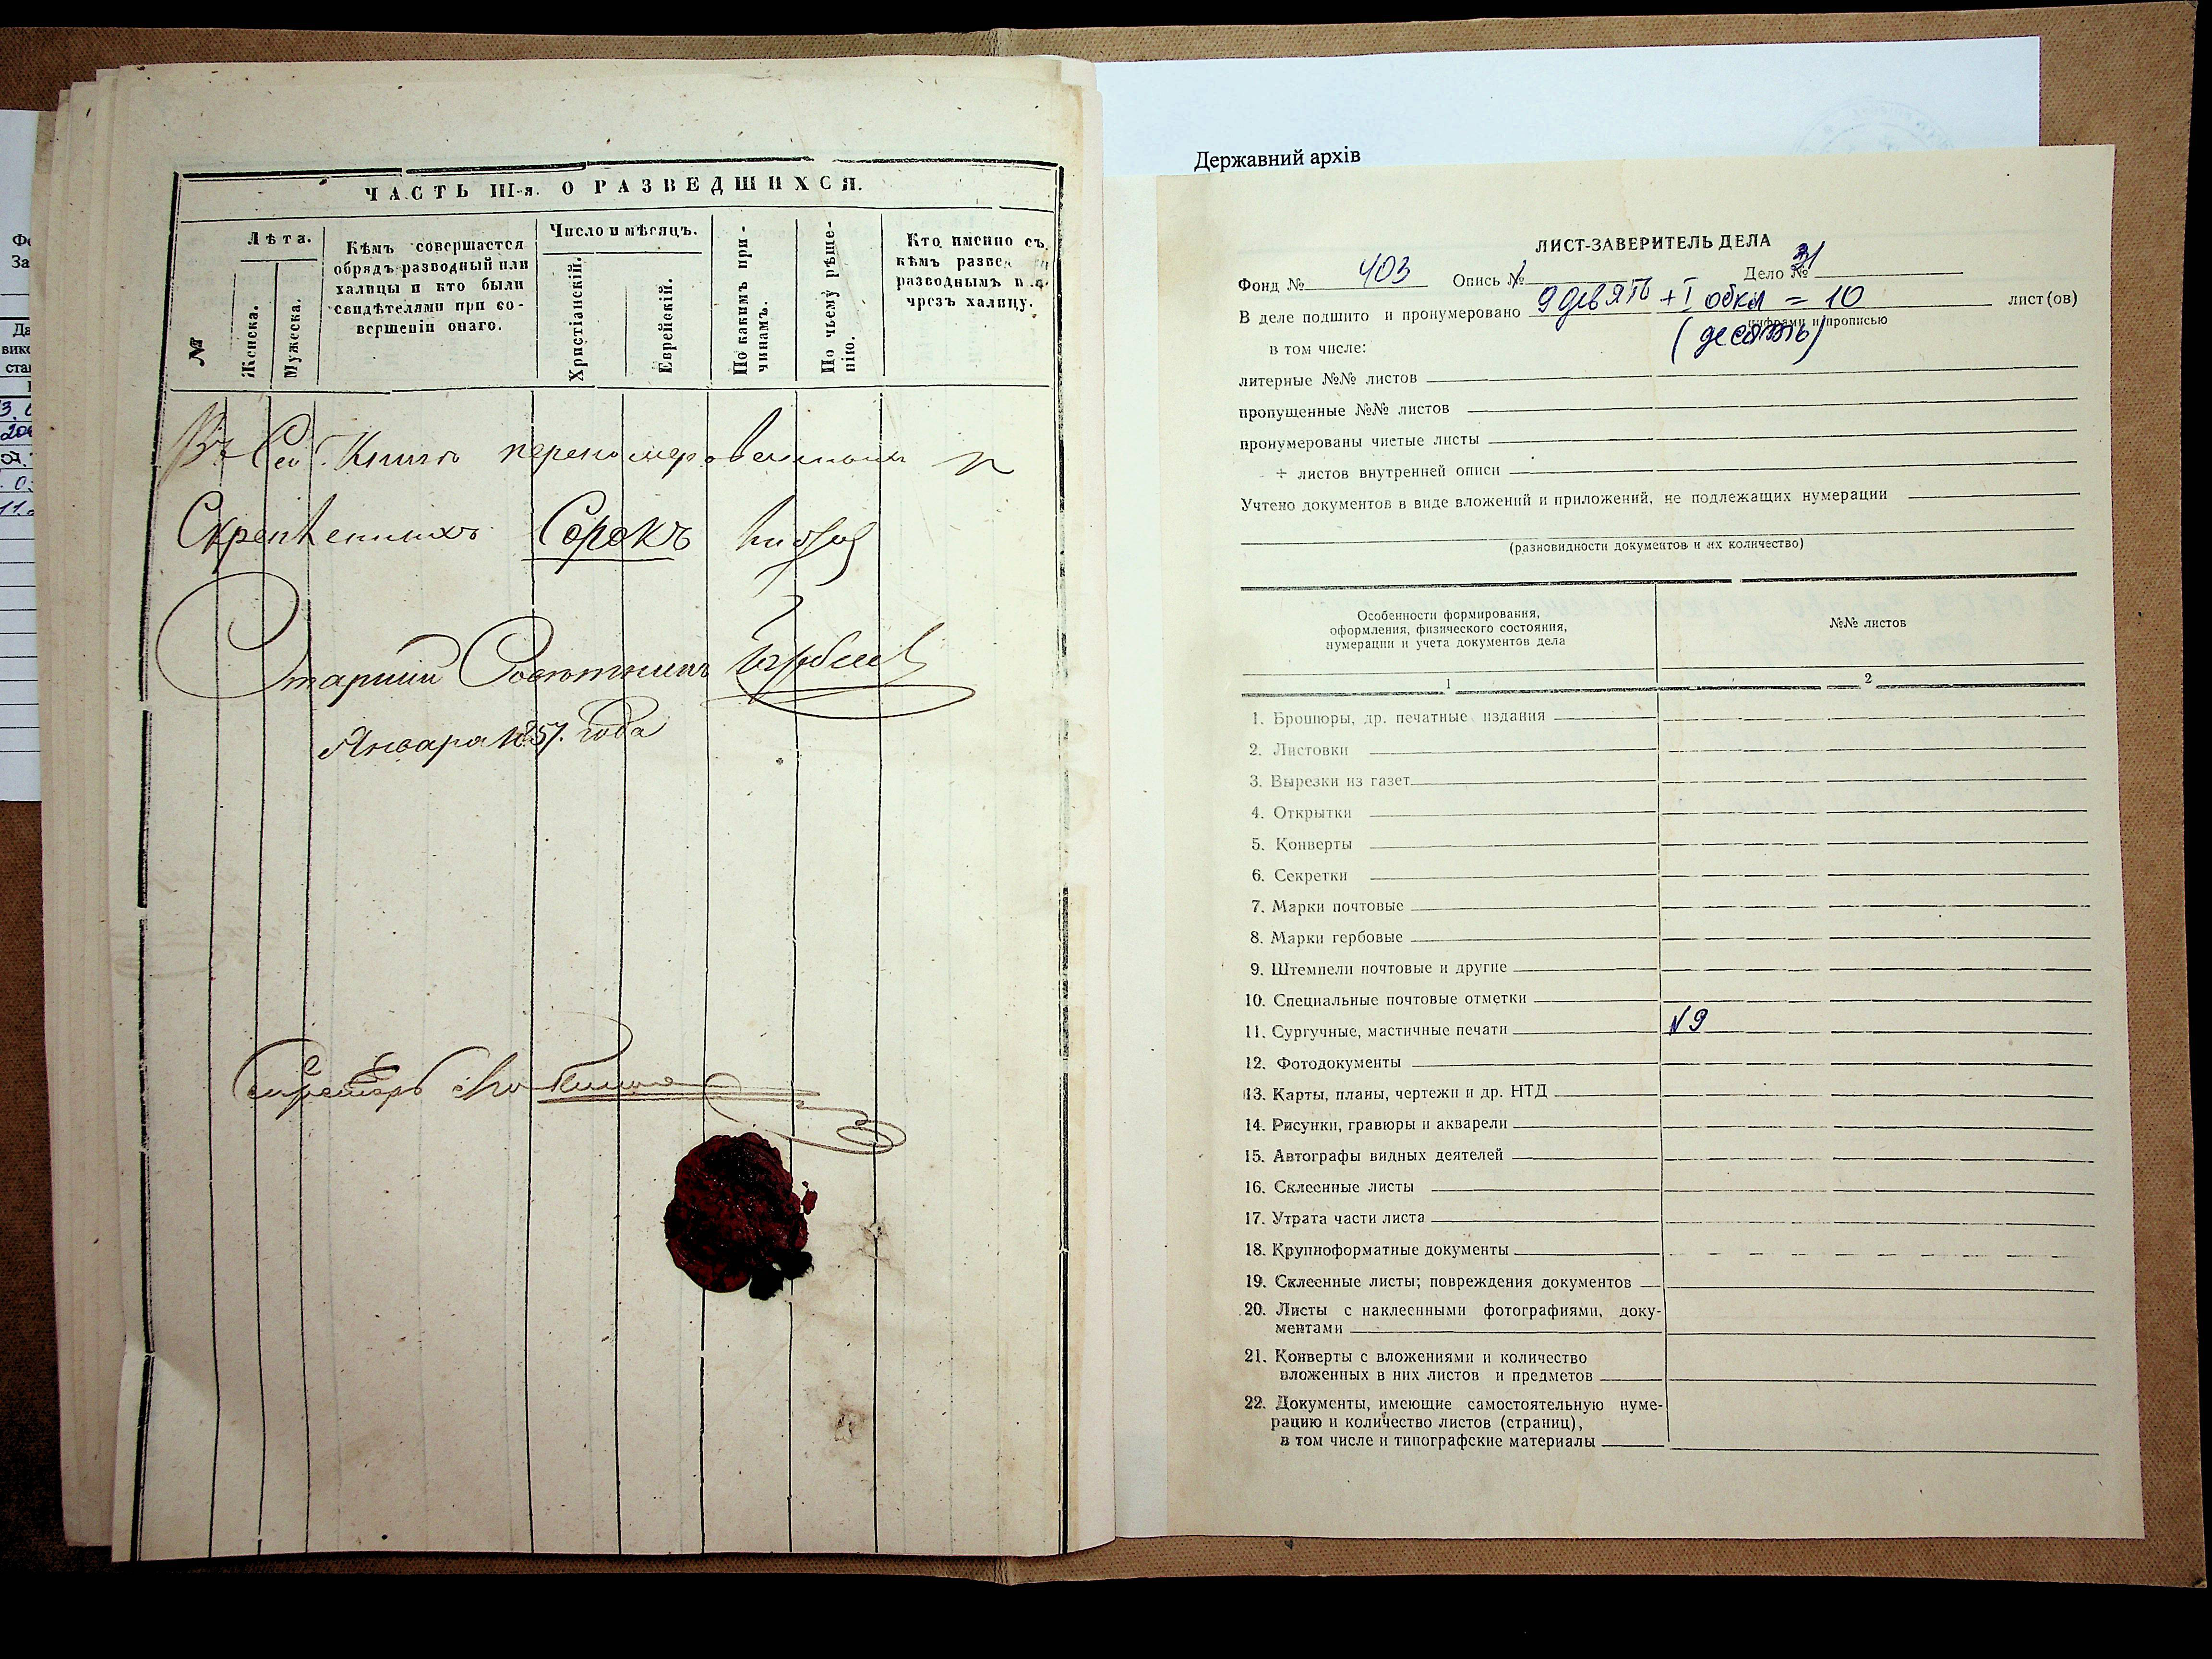 ЧАСТЬ III-я. О РАЗВЕДШИХСЯ.
№
Лѣта.
Женска.
Мужеска.
Кѣмъ совершается
обрядъ разводный или
халицы и кто были
свидѣтелями при со-
вершеніи онаго.
Число и мѣсяцъ.
Христіанскій.
Еврейскій.
По какимъ при-
чинамъ.
По чьему рѣше-
нію.
Кто именно съ
кѣмъ разве
разводнымъ и
чрезъ халицу.
Въ Сей Книгѣ перенумерованныхъ и
Скрепленныхъ Сорокъ
Старший Советникъ
Января 1857. года
Секретарь
Державний архів
ЛИСТ-ЗАВЕРИТЕЛЬ ДЕЛА
Фонд № 403 Опись № 1 Дело № 31
В деле подшито и пронумеровано 9 девять + I обкл = 10 лист(ов)
цифрами и прописью
(десять)
в том числе:
литерные №№ листов
пропущенные №№ листов
пронумерованы чистые листы
+ листов внутренней описи
Учтено документов в виде вложений и приложений, не подлежащих нумерации
(разновидности документов и их количество)
Особенности формирования,
оформления, физического состояния,
нумерации и учета документов дела
№№ листов
1
2
1. Брошюры, др. печатные издания
2. Листовки
3. Вырезки из газет
4. Открытки
5. Конверты
6. Секретки
7. Марки почтовые
8. Марки гербовые
9. Штемпели почтовые и другие
10. Специальные почтовые отметки
11. Сургучные, мастичные печати №9
12. Фотодокументы
13. Карты, планы, чертежи и др. НТД
14. Рисунки, гравюры и акварели
15. Автографы видных деятелей
16. Склеенные листы
17. Утрата части листа
18. Крупноформатные документы
19. Склеенные листы; повреждения документов
20. Листы с наклеенными фотографиями, доку-
ментами
21. Конверты с вложениями и количество
вложенных в них листов и предметов
22. Документы, имеющие самостоятельную нуме-
рацию и количество листов (страниц),
в том числе и типографские материалы